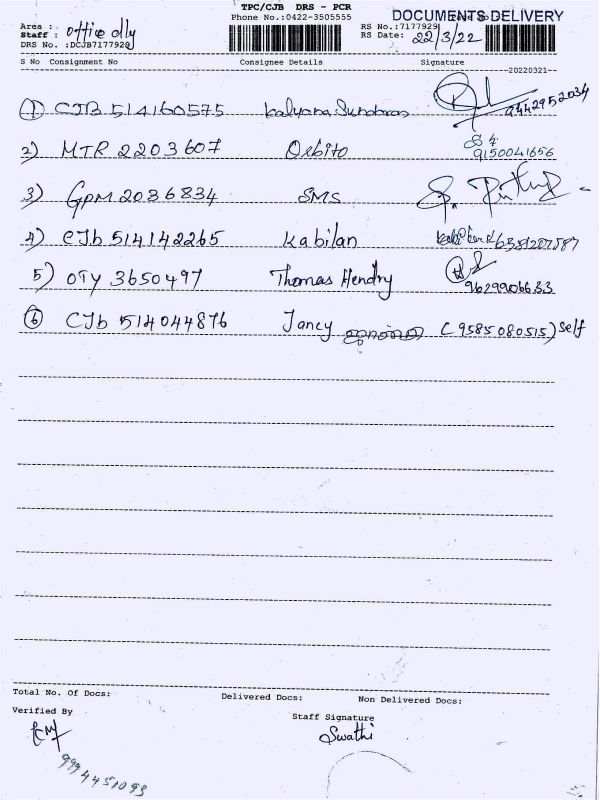 TPC/CJB DRS - PCR
Phone No.:0422-3505555
DOCUMENTS DELIVERY
Area :
Staff : office dly
DRS No. :DCJB7177929
RS No.:7177929
RS Date: 22/3/22
S No Consignment No Consignee Details Signature
20220321
1 CJB 514160575 Kalyana Sundaras 9442952034
2) MTR 2203607 Orbito 9150041656
3) GPM 2036834 SMS
4) CJb 514142265 Kabilan 6381207587
5) OTY 3650497 Thomas Hendry 9629906633
6 CJb 514044876 Jancy (9585080515) Self
Total No. Of Docs: Delivered Docs: Non Delivered Docs:
Verified By
Staff Signature
Swathi
9994451093